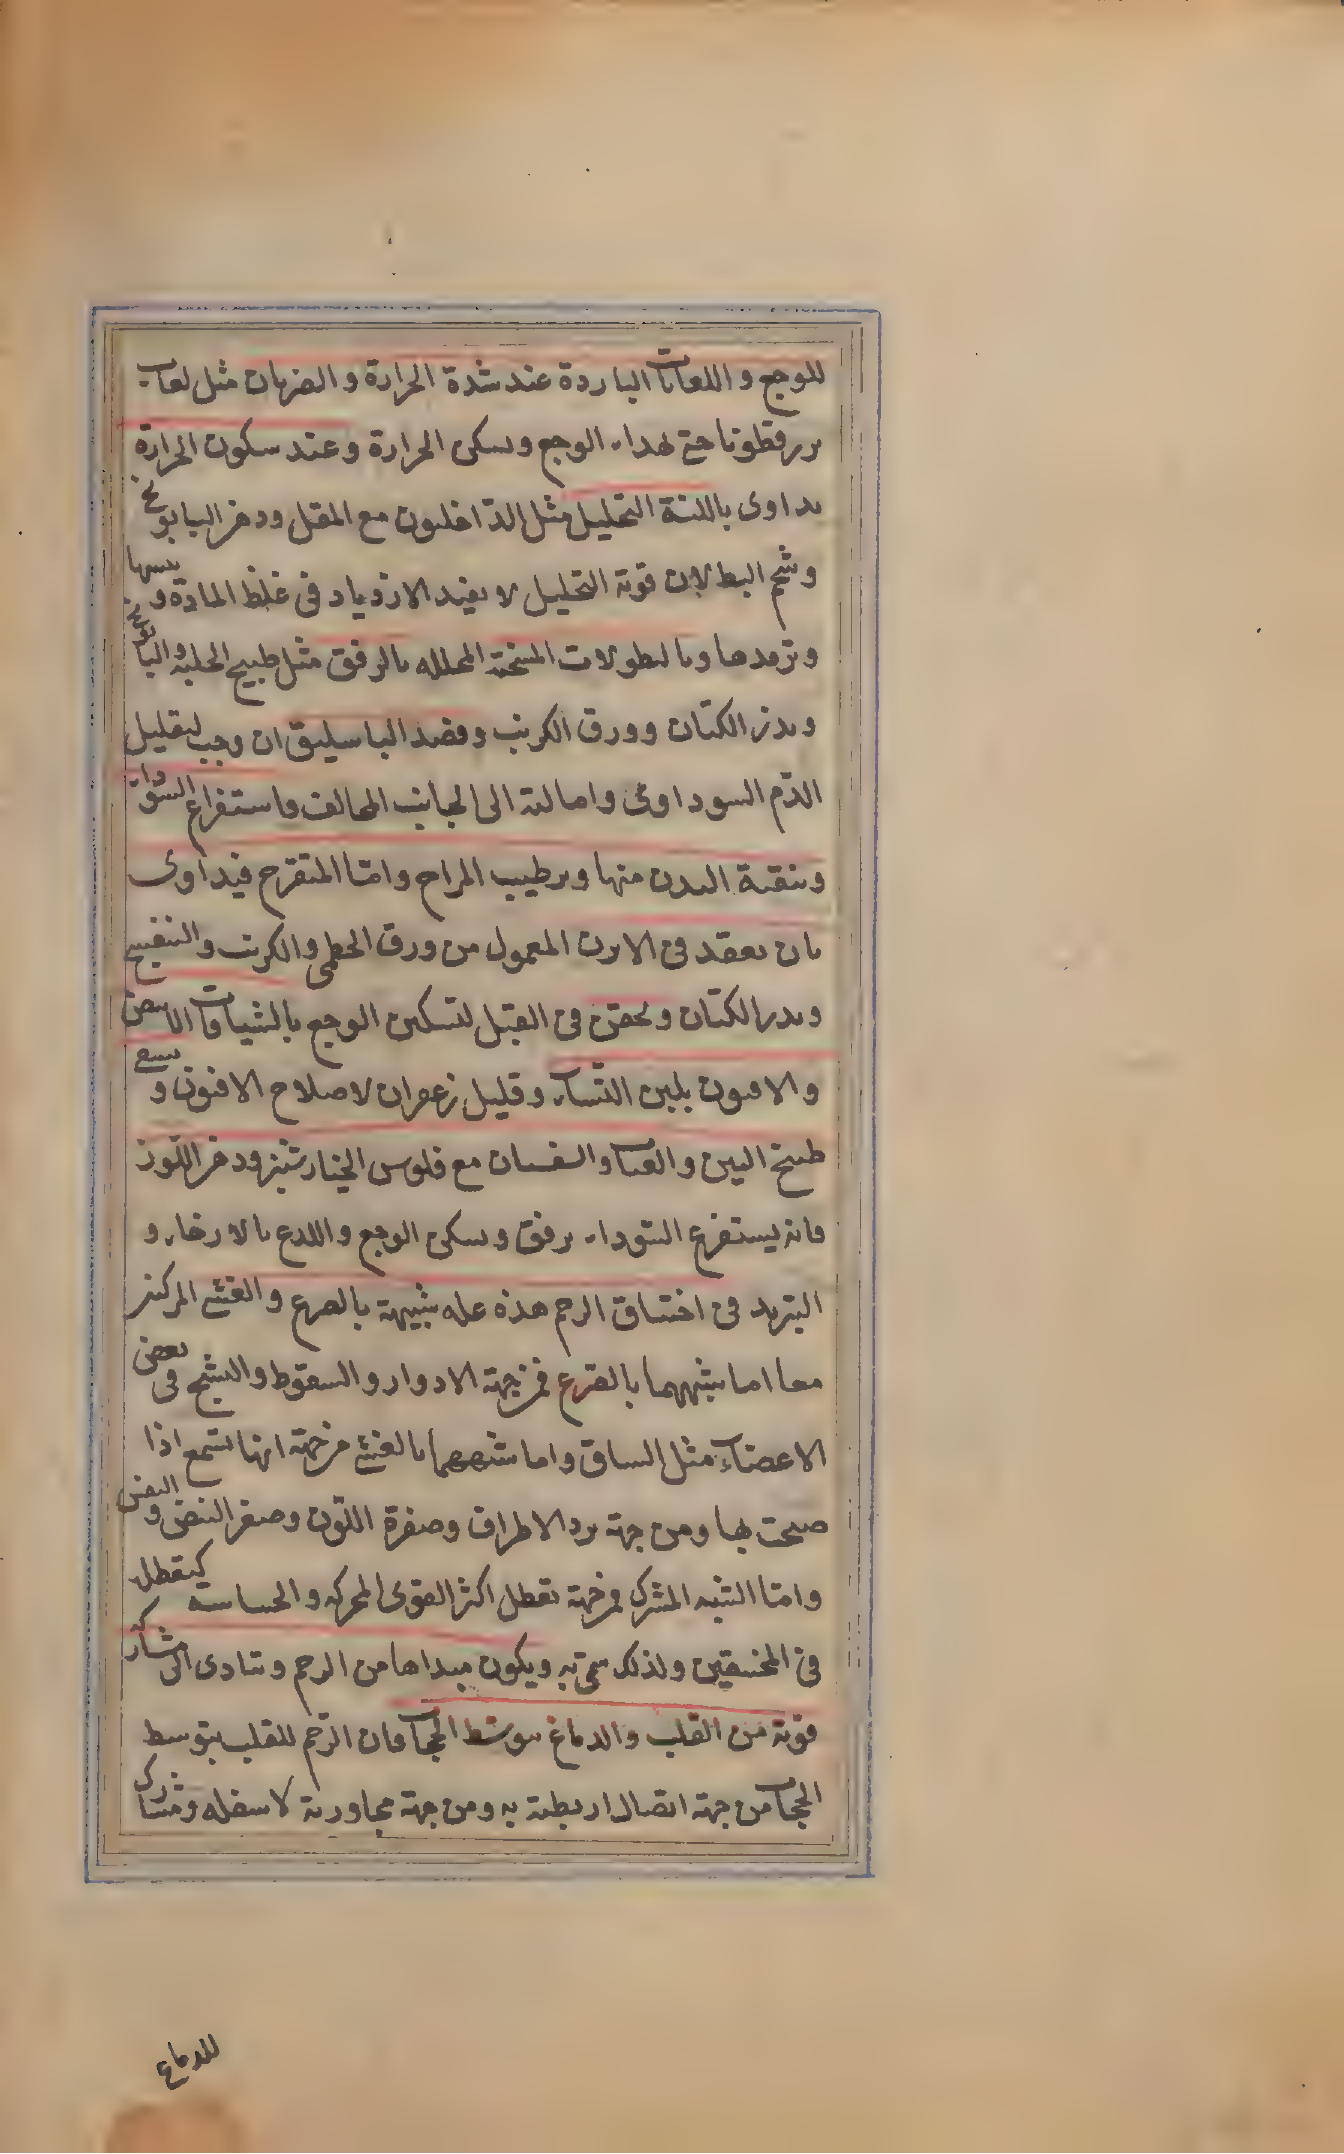 للوجع واللعابات الباردة عند شدة الحرارة والضربان مثل لعاب
بزر قطونا حتى يهداء الوجع ويسكن الحرارة وعند سكون الحرارة
يداوى باللينة التحليل مثل الداخليون مع المقل ودهن البابونج
وشحم البط لان قوية التحليل لا يفيد الا ازدياد في غلظ المادة ويبسها
وترمدها وبالنطولات المسخنة المحلله بالرفق مثل طبيخ الحلبة والبابونج
وبذر الكتان وورق الكرنب وفصد الباسليق ان وجب لتقليل
الدم السوداوى وامالته الى الجانب المخالف واستفراغ السوداء
وتنقية البدن منها وترطيب المزاج واما المتقرح فيداوى
بان يعقد فى الابزن المعمول من ورق الخطمى والكرنب والبنفسج
وبذر الكتان ويحقن فى القبل لتسكين الوجع بالشيافات الابيض
والافيون بلبن النساء وقليل زعفران لاصلاح الافيون ويسع
طبيخ التين والعناب والسفستان مع فلوس الخيار شنبر ودهن اللوز
فانه يستفرغ السوداء برفق ويسكن الوجع واللدع بالارخاء و
التبريد فى اختناق الرحم هذه عله شبيهة بالصرع والغشى المركبتين
معا اما شبهها بالصرع فمن جهة الادوار والسقوط والتشنج فى بعض
الاعضاء مثل الساق واما شبهها بالغشى من جهة انها تسمع اذا
صيحت بها ومن جهة برد الاطراف وصفرة اللون وصغر النبض و
واما الشبه المشترك فمن جهة تعطل اكثر القوى المحركه والحساسه كتعطله
فى المختنقين ولذلك سمى به ويكون مبداها من الرحم وتتادى الى مشاركه
قوية من القلب والدماغ بتوسط الحجاب فان الرحم للقلب بتوسط
الحجاب من جهة اتصال اربطته به ومن جهة مجاورته لاسفله ومشارك
للدماغ